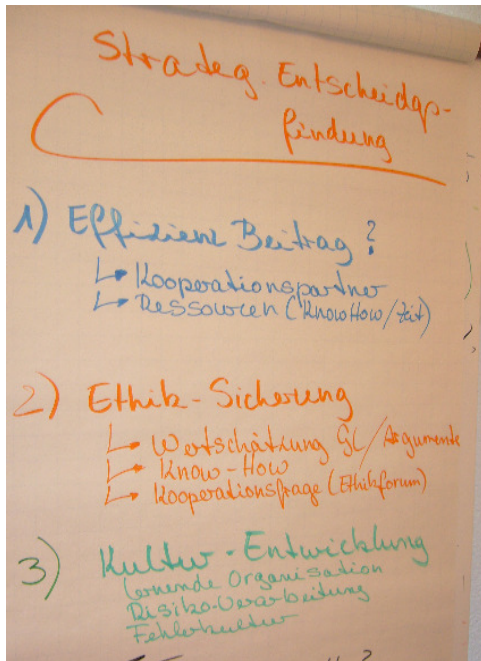 Strateg. Entscheidgs-
findung
1) Effizienz Beitrag?
↳ Kooperationspartner
↳ Ressourcen (KnowHow/Zeit)
2) Ethik-Sicherung
↳ Wertschätzung GL/Argumente
↳ Know-How
↳ Kooperationsfrage (Ethikforum)
3) Kultur-Entwicklung
Lernende Organisation
Risiko-Verarbeitung
Fehlerkultur